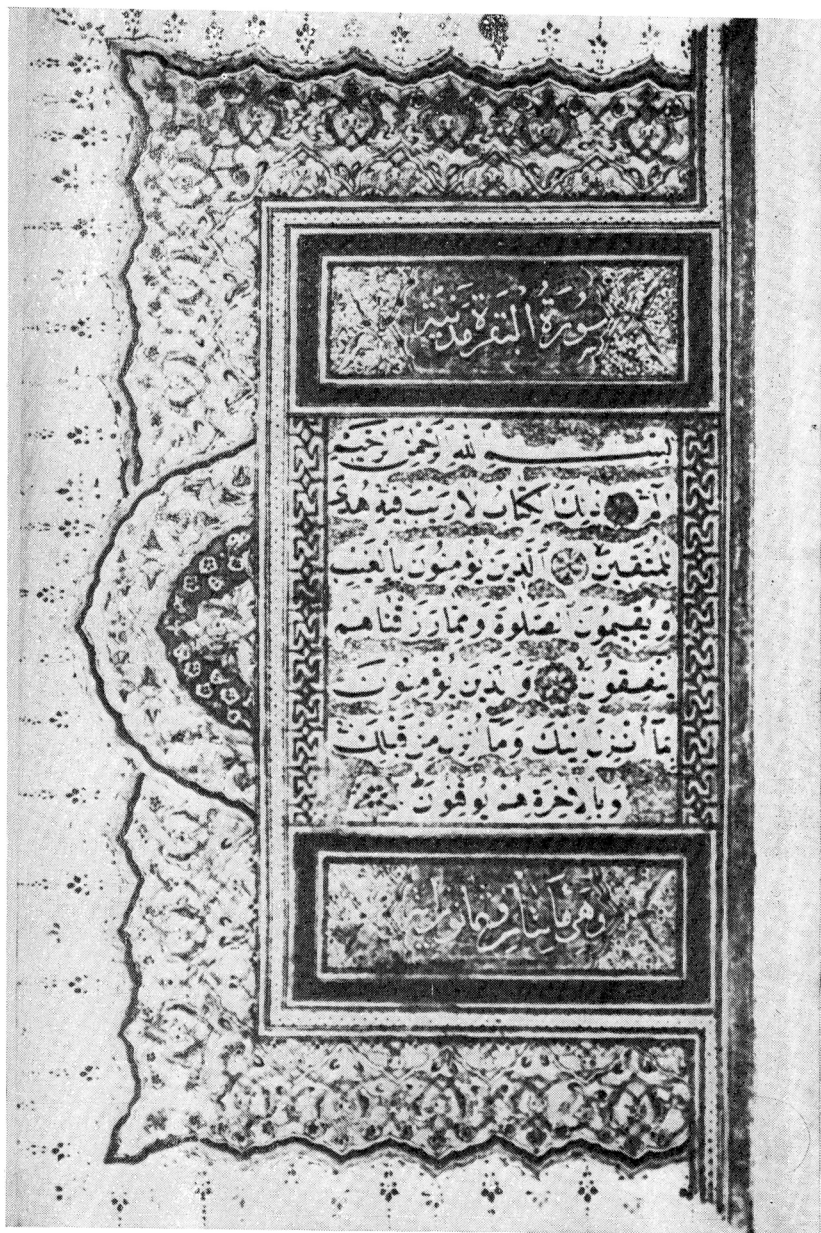 سُورَةُ الْبَقَرَةِ مَدَنِيَّة
بِسْمِ اللهِ الرَّحْمٰنِ الرَّحِيمِ
الٓمٓ ذٰلِكَ الْكِتَابُ لَا رَيْبَ فِيهِ هُدًى
لِلْمُتَّقِينَ الَّذِينَ يُؤْمِنُونَ بِالْغَيْبِ
وَيُقِيمُونَ الصَّلٰوةَ وَمِمَّا رَزَقْنَاهُمْ
يُنْفِقُونَ وَالَّذِينَ يُؤْمِنُونَ
بِمَا أُنْزِلَ إِلَيْكَ وَمَا أُنْزِلَ مِنْ قَبْلِكَ
وَبِالْاٰخِرَةِ هُمْ يُوقِنُونَ
وهى مائتان وثمانون اية